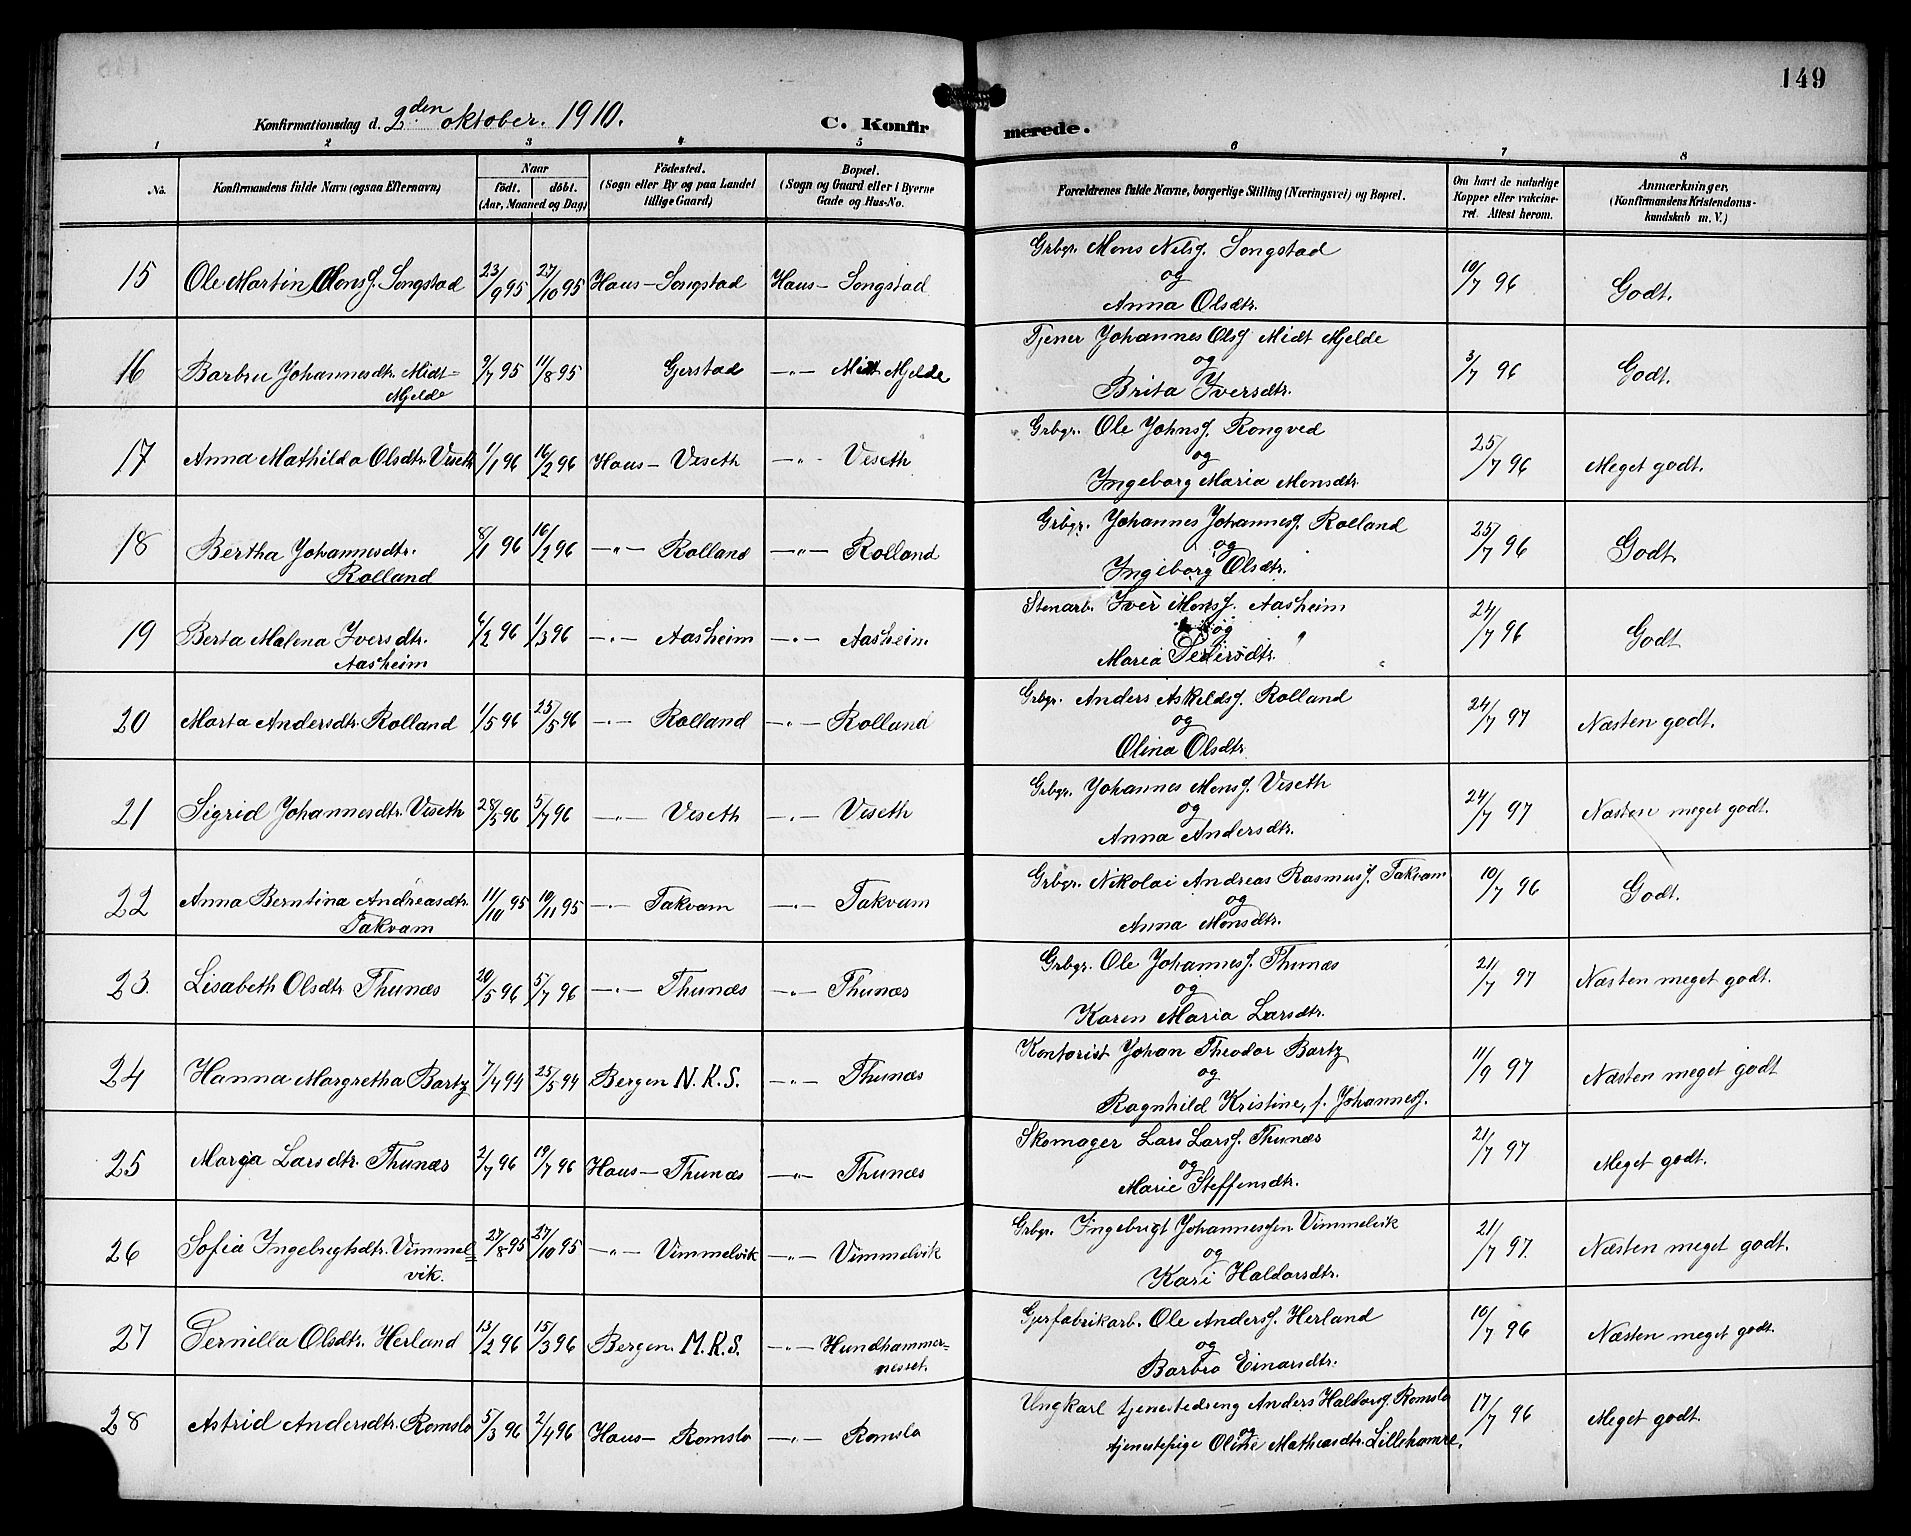 149
Konfirmationsdag d. 2den oktober. 1910.
C. Konfirmerede.
1 2 3 4 5 6 7 8
No. Konfirmandens fulde Navn (ogsaa Efternavn) Naar födt. döbt. (Aar, Maaned og Dag) Födested. (Sogn eller By og paa Landet tillige Gaard) Bopæl. (Sogn og Gaard eller i Byerne Gade og Hus-No. Forældrenes fulde Navne, borgerlige Stilling (Næringsvei) og Bopæl. Om havt de naturlige Kopper eller vakcineret. Attest herom. Anmærkninger, (Konfirmandens Kristendomskundskab m. V.)
Grbgr. Mons Nilsf. Songstad
15 Ole Martin Monsf. Songstad 23/9 95 27/10 95 Haus - Songstad Haus - Songstad og 10/7 96 Godt.
Anna Olsdtr.
Tjener Johannes Olsf Midt Mjelde
16 Barbru Johannesdtr. Midt= 9/7 95 11/8 95 Gjerstad -"- Midt Mjelde og 3/7 96 Godt.
Mjelde Brita Iversdtr.
Grbgr. Ole Johnsf. Rongved
17 Anna Mathilda Olsdtr. Viseth 1/1 96 16/2 96 Haus - Viseth -"- Viseth og 25/7 96 Meget godt.
Ingeborg Maria Monsdtr.
Grbgr. Johannes Johannesf. Rolland
18 Bertha Johannesdtr. 8/1 96 16/2 96 -"- Rolland -"- Rolland og 25/7 96 Godt
Rolland Ingeborg Olsdtr.
Stenarb. Iver Monsf. Aasheim
19 Berta Malena Iversdtr. 6/2 96 1/3 96 -"- Aasheim -"- Aasheim. og 24/7 96 Godt
Aasheim Maria Peersdtr.
Grbgr. Anders Askeldsf. Rolland
20 Marta Andersdtr. Rolland 1/5 96 25/5 96 -"- Rolland -"- Rolland og 24/7 97 Næsten godt.
Olina Olsdtr
Grbgr. Johannes Monsf. Viseth
21 Sigrid Johannesdtr. Viseth 28/5 96 5/7 96 -"- Viseth -"- Viseth og 24/7 97 Næsten meget godt.
Anna Andersdtr.
Grbgr. Nikolai Andreas Rasmusf. Takvam
22 Anna Berntina Andreasdtr. 11/10 95 10/11 95 -"- Takvam -"- Takvam og 10/7 96 Godt.
Takvam Anna Monsdtr.
Grbgr. Ole Johannesf. Thunæs
23. Lisabeth Olsdtr Thunæs 20/5 96 5/7 96 -"- Thunæs -"- Thunæs og 21/7 97 Næsten meget godt.
Karen Maria Larsdtr.
Kontorist Johan Theodor Bartz
24 Hanna Margretha Bartz 7/4 94 25/5 94 Bergen N.K.S. -"- Thunæs og 11/9 97 Næsten meget godt
Ragnhild Kristine, f. Johannesf.
Skomager Lars Larsf. Thunæs
25 Marja Larsdtr. Thunæs 2/7 96 19/7 96 Haus - Thunæs -"- Thunæs og 21/7 97 Meget godt.
Marie Steffensdtr.
Grbgr. Ingebrigt Johannessen Vimmelvik
26 Sofia Ingebrigtsdtr. Vimmel= 27/8 95 27/10 95 -"- Vimmelvik -"- Vimmelvik og 21/7 97. Næsten meget godt.
vik. Kari Haldorsdtr.
Gjerfabrikarb. Ole Andersf. Herland
27 Pernilla Olsdtr. Herland 13/2 96 15/3 96 Bergen M.K.S. -"- Hundhammer= og 10/7 96 Næsten meget godt.
nesset. Barbro Einarsdtr.
Ungkarl tjenestedreng Anders Haldorsf. Romslo
28 Astrid Andersdtr. Romslo 5/3 96 2/4 96 Haus - Romslo -"- Romslo og 17/7 96 Meget godt.
tjenestepige Oline Mathiasdtr. Lillehamre.